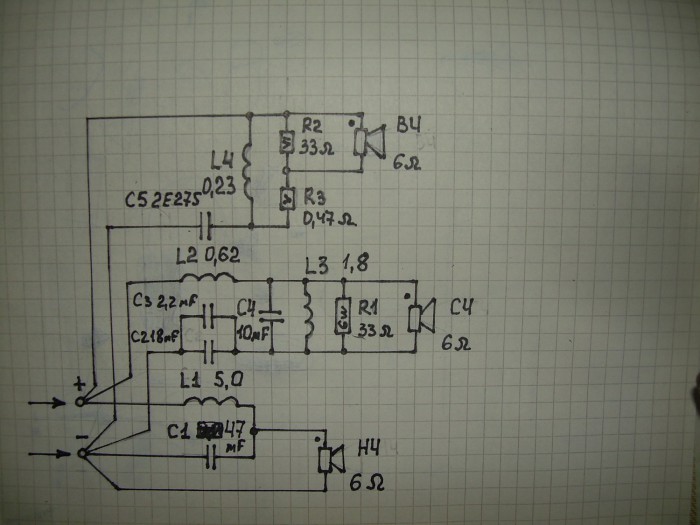 R2
33Ω
ВЧ
6Ω
L4
0,23
R3
0,47Ω
C5 2E275
L2 0,62
L3 1,8
C3 2,2mF
C4
10mF
C2 18mF
R1
33Ω
6w
СЧ
6Ω
+
L1 5,0
C1 47
mF
−
НЧ
6Ω